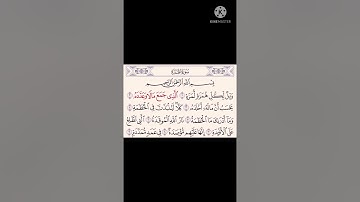 KINEMASTER
سورة الهمزة
بسم الله الرحمن الرحيم
وَيْلٌ لِّكُلِّ هُمَزَةٍ لُّمَزَةٍ ١ الَّذِي جَمَعَ مَالًا وَعَدَّدَهُ ٢
يَحْسَبُ أَنَّ مَالَهُ أَخْلَدَهُ ٣ كَلَّا لَيُنبَذَنَّ فِي الْحُطَمَةِ ٤
وَمَا أَدْرَاكَ مَا الْحُطَمَةُ ٥ نَارُ اللَّهِ الْمُوقَدَةُ ٦ الَّتِي تَطَّلِعُ
عَلَى الْأَفْئِدَةِ ٧ إِنَّهَا عَلَيْهِم مُّؤْصَدَةٌ ٨ فِي عَمَدٍ مُّمَدَّدَةٍ ٩